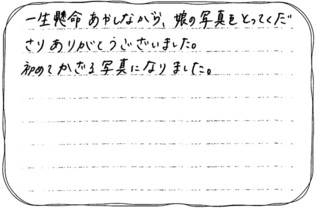 一生懸命あやしながら、娘の写真をとってくだ
さりありがとうございました。
初めてかざる写真になりました。